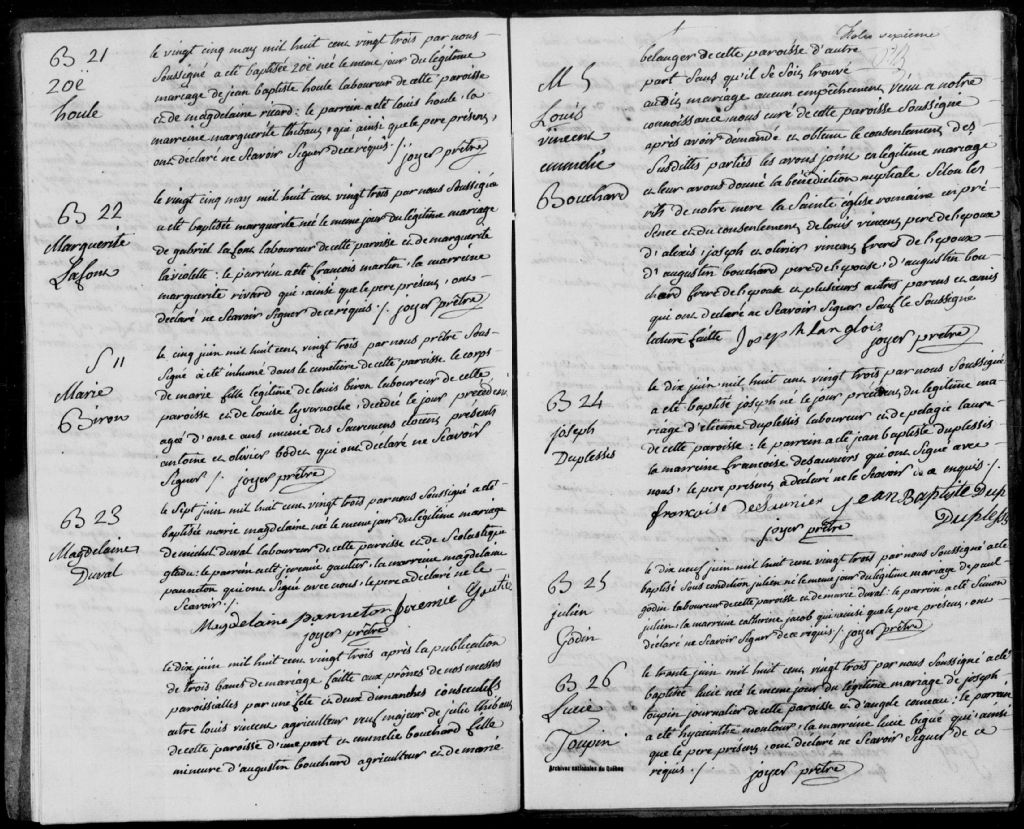 B 21
Zoë
houle
le vingt cinq may mil huit cens vingt trois par nous
Soussigné a eté baptisée Zoë né le meme jour du légitime
mariage de jean baptiste houle laboureur de cette paroisse
et de magdelaine ricard : le parrein a eté louis houle, la
marreine marguerite thibaus, qui ainsi que le pere présens,
ont déclaré ne Scavoir Signer de ce requis ./. joyer prêtre
B 22
Marguerite
Lafons
le vingt cinq may mil huit cens vingt trois par nous Soussigné
a eté baptisée marguerite née le meme jour du légitime mariage
de gabriel lafons laboureur de cette paroisse et de marguerite
laviolette : le parrein a eté francois martin, la marreine
marguerite rivard qui, ainsi que le pere présens, ont
déclaré ne Scavoir Signer de ce réquis ./. joyer prêtre
S 11
Marie
Biron
le cinq juin mil huit cens vingt trois par nous prêtre Sous-
Signé a eté inhumé dans le cimetière de cette paroisse le corps
de marie fille légitime de louis biron laboureur de cette
paroisse et de louise lyvernoche, décédée le jour précédens
agée d'onze ans munie des Sacremens etoiens présents
antoine et olivier bodet qui ont déclaré ne Scavoir
Signer ./. joyer prêtre
B 23
Magdelaine
Duval
le Sept juin mil huit cens vingt trois par nous Soussigné a eté
baptisée marie magdelaine née le meme jour du légitime mariage
de michel duval laboureur de cette paroisse et de Scolastique
: le parrein a eté jeremie gautier, la marreine magdelaine
panneton qui ont Signé avec nous, le pere a déclaré ne le
Scavoir ./.
Magdelaine panneton Jeremie Goutie
joyer prêtre
le dix juin mil huit cens vingt trois après la publication
de trois bancs de mariage faitte aux prônes de nos messes
paroissialles par une fête et deux dimanches consecutifs
entre louis vincent agriculteur veuf majeur de julie thibaus
de cette paroisse d'une part et emmelie bouchard fille
mineure d'augustin bouchard agriculteur et de marie
folio sixième
M 5
Louis
vincent
emmelie
Bouchard
belanger de cette paroisse d'autre
part Sans qu'il Se Soit trouvé
audit mariage aucun empêchement venu a notre
connoissance nous curé de cette paroisse Soussigné
après avoir demandé et obtenu le consentement des
Susdittes parties les avons joint en légitime mariage
et leur avons donné la bénédiction nuptiale Selon les
rits de notre mere la Sainte église romaine en pré-
sence et du consentement de louis vincent pere de l'epoux
d'alexis, joseph et olivier vincent freres de l'epoux
d'augustin bouchard pere de l'epouse, d'augustin bou-
chard frere de l'epouse et plusieurs autres parens et amis
qui ont declaré ne Scavoir Signer Sauf le Soussigné
lecture faitte Joseph Langlois
joyer prêtre
B 24
joseph
Duplessis
le dix juin mil huit cens vingt trois par nous Soussigné
a eté baptisé joseph né le jour précédent du légitime ma-
riage d'etienne duplessis laboureur et de pelagie laure
de cette paroisse : le parrein a eté jean baptiste duplessis
la marreine francoise desauniers qui ont Signé avec
nous, le pere présens a déclaré ne le Scavoir de ce enquis ./.
francoise dessaunier jean Baptiste Dup
Dupless
joyer prêtre
B 25
julien
Godin
le dix neuf juin mil huit cens vingt trois par nous Soussigné a eté
baptisé Sous condition julien né le meme jour du légitime mariage de paul
godin laboureur de cette paroisse et de marie duval : le parrein a eté Simon
julien, la marreine catherine jacob qui, ainsi que le pere présens, ont
déclaré ne Scavoir Signer de ce requis ./. joyer prêtre
B 26
Lucie
Toupin
le trante juin mil huit cens vingt trois par nous Soussigné a eté
baptisée lucie née le meme jour du légitime mariage de joseph
toupin journalier de cette paroisse et d'angele comeau : le parrein
a eté hyacinthe montour, la marreine lucie bigué qui, ainsi
que le pere présens, ont déclaré ne Scavoir Signer de ce
réquis ./. joyer prêtre
Archives nationales du Québec